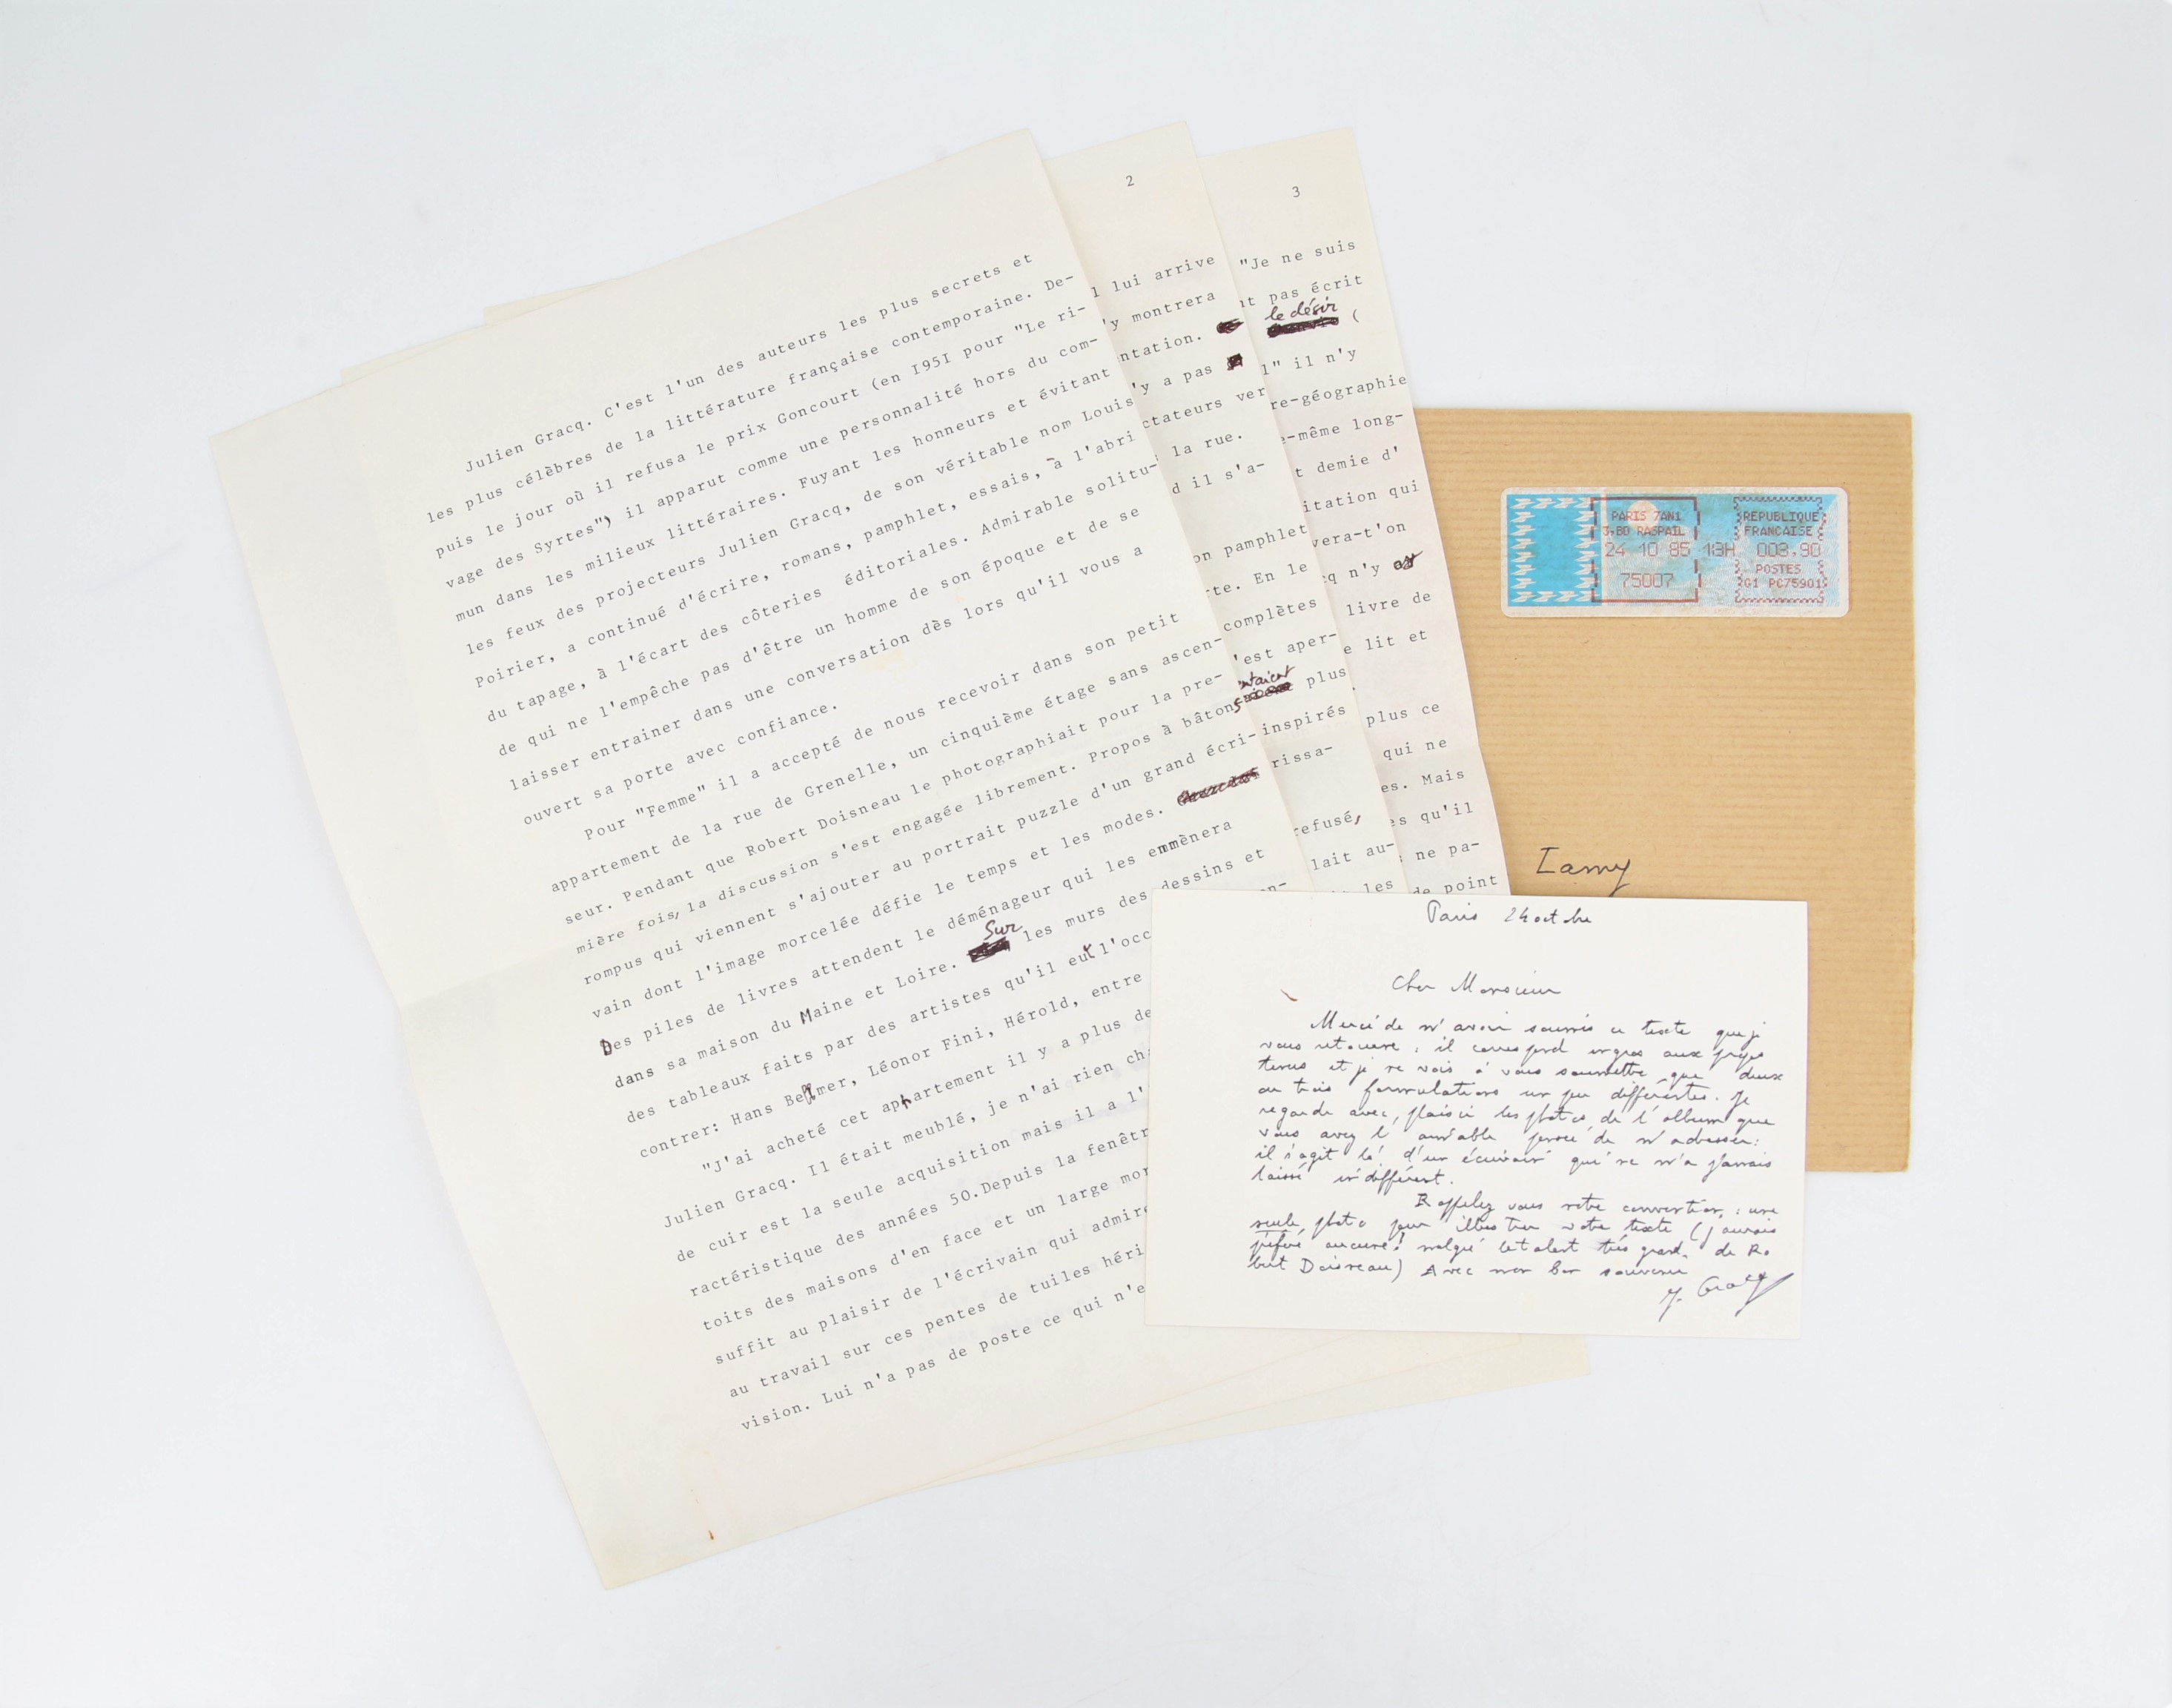 Julien Gracq. C'est l'un des auteurs les plus secrets et
les plus célèbres de la littérature française contemporaine. De-
puis le jour où il refusa le prix Goncourt (en I95I pour "Le ri-
vage des Syrtes") il apparut comme une personnalité hors du com-
mun dans les milieux littéraires. Fuyant les honneurs et évitant
les feux des projecteurs Julien Gracq, de son véritable nom Louis
Poirier, a continué d'écrire, romans, pamphlet, essais, à l'abri
du tapage, à l'écart des côteries éditoriales. Admirable solitu-
de qui ne l'empêche pas d'être un homme de son époque et de se
laisser entrainer dans une conversation dès lors qu'il vous a
ouvert sa porte avec confiance.
Pour "Femme" il a accepté de nous recevoir dans son petit
appartement de la rue de Grenelle, un cinquième étage sans ascen-
seur. Pendant que Robert Doisneau le photographiait pour la pre-
mière fois, la discussion s'est engagée librement. Propos à bâtons
rompus qui viennent s'ajouter au portrait puzzle d'un grand écri-
vain dont l'image morcelée défie le temps et les modes.
Des piles de livres attendent le déménageur qui les emmènera
dans sa maison du Maine et Loire. Sur les murs des dessins et
des tableaux faits par des artistes qu'il eut l'occ
contrer: Hans Bellmer, Léonor Fini, Hérold, entre
"J'ai acheté cet appartement il y a plus de
Julien Gracq. Il était meublé, je n'ai rien cha
de cuir est la seule acquisition mais il a l'
ractéristique des années 50.Depuis la fenêtr
toits des maisons d'en face et un large mor
suffit au plaisir de l'écrivain qui admire
au travail sur ces pentes de tuiles héri
vision. Lui n'a pas de poste ce qui n'e
2
l lui arrive
'y montrera
entation.
'y a pas
ctateurs ver
la rue.
d il s'a-
on pamphlet
te. En le
complètes
'est aper-
ntaient plus
inspirés
rissa-
refusé,
lait au-
les
3
"Je ne suis
nt pas écrit
le désir (
l" il n'y
re-géographie
e-même long-
t demie d'
itation qui
vera-t'on
cq n'y
livre de
e lit et
plus ce
qui ne
es. Mais
es qu'il
ne pa-
de point
PARIS 7AN1
3,BD RASPAIL
24 10 85 18H
75007
REPUBLIQUE
FRANCAISE
003,90
POSTES
G1 PC75901
Lamy
Paris 24 octobre
Cher Monsieur
Merci de m'avoir soumis ce texte que je
vous retourne : il correspond en gros aux propos
tenus et je ne vois à vous soumettre que deux
ou trois formulations un peu différentes. Je
regarde avec plaisir les photos de l'album que
vous avez l'aimable pensée de m'adresser :
il s'agit là d'un écrivain qui ne m'a jamais
laissé indifférent.
Rappelez vous notre convention : une
seule photo pour illustrer votre texte (j'aurais
préféré aucune ! malgré le talent très grand de Ro
bert Doisneau) Avec mon bon souvenir
J. Gracq